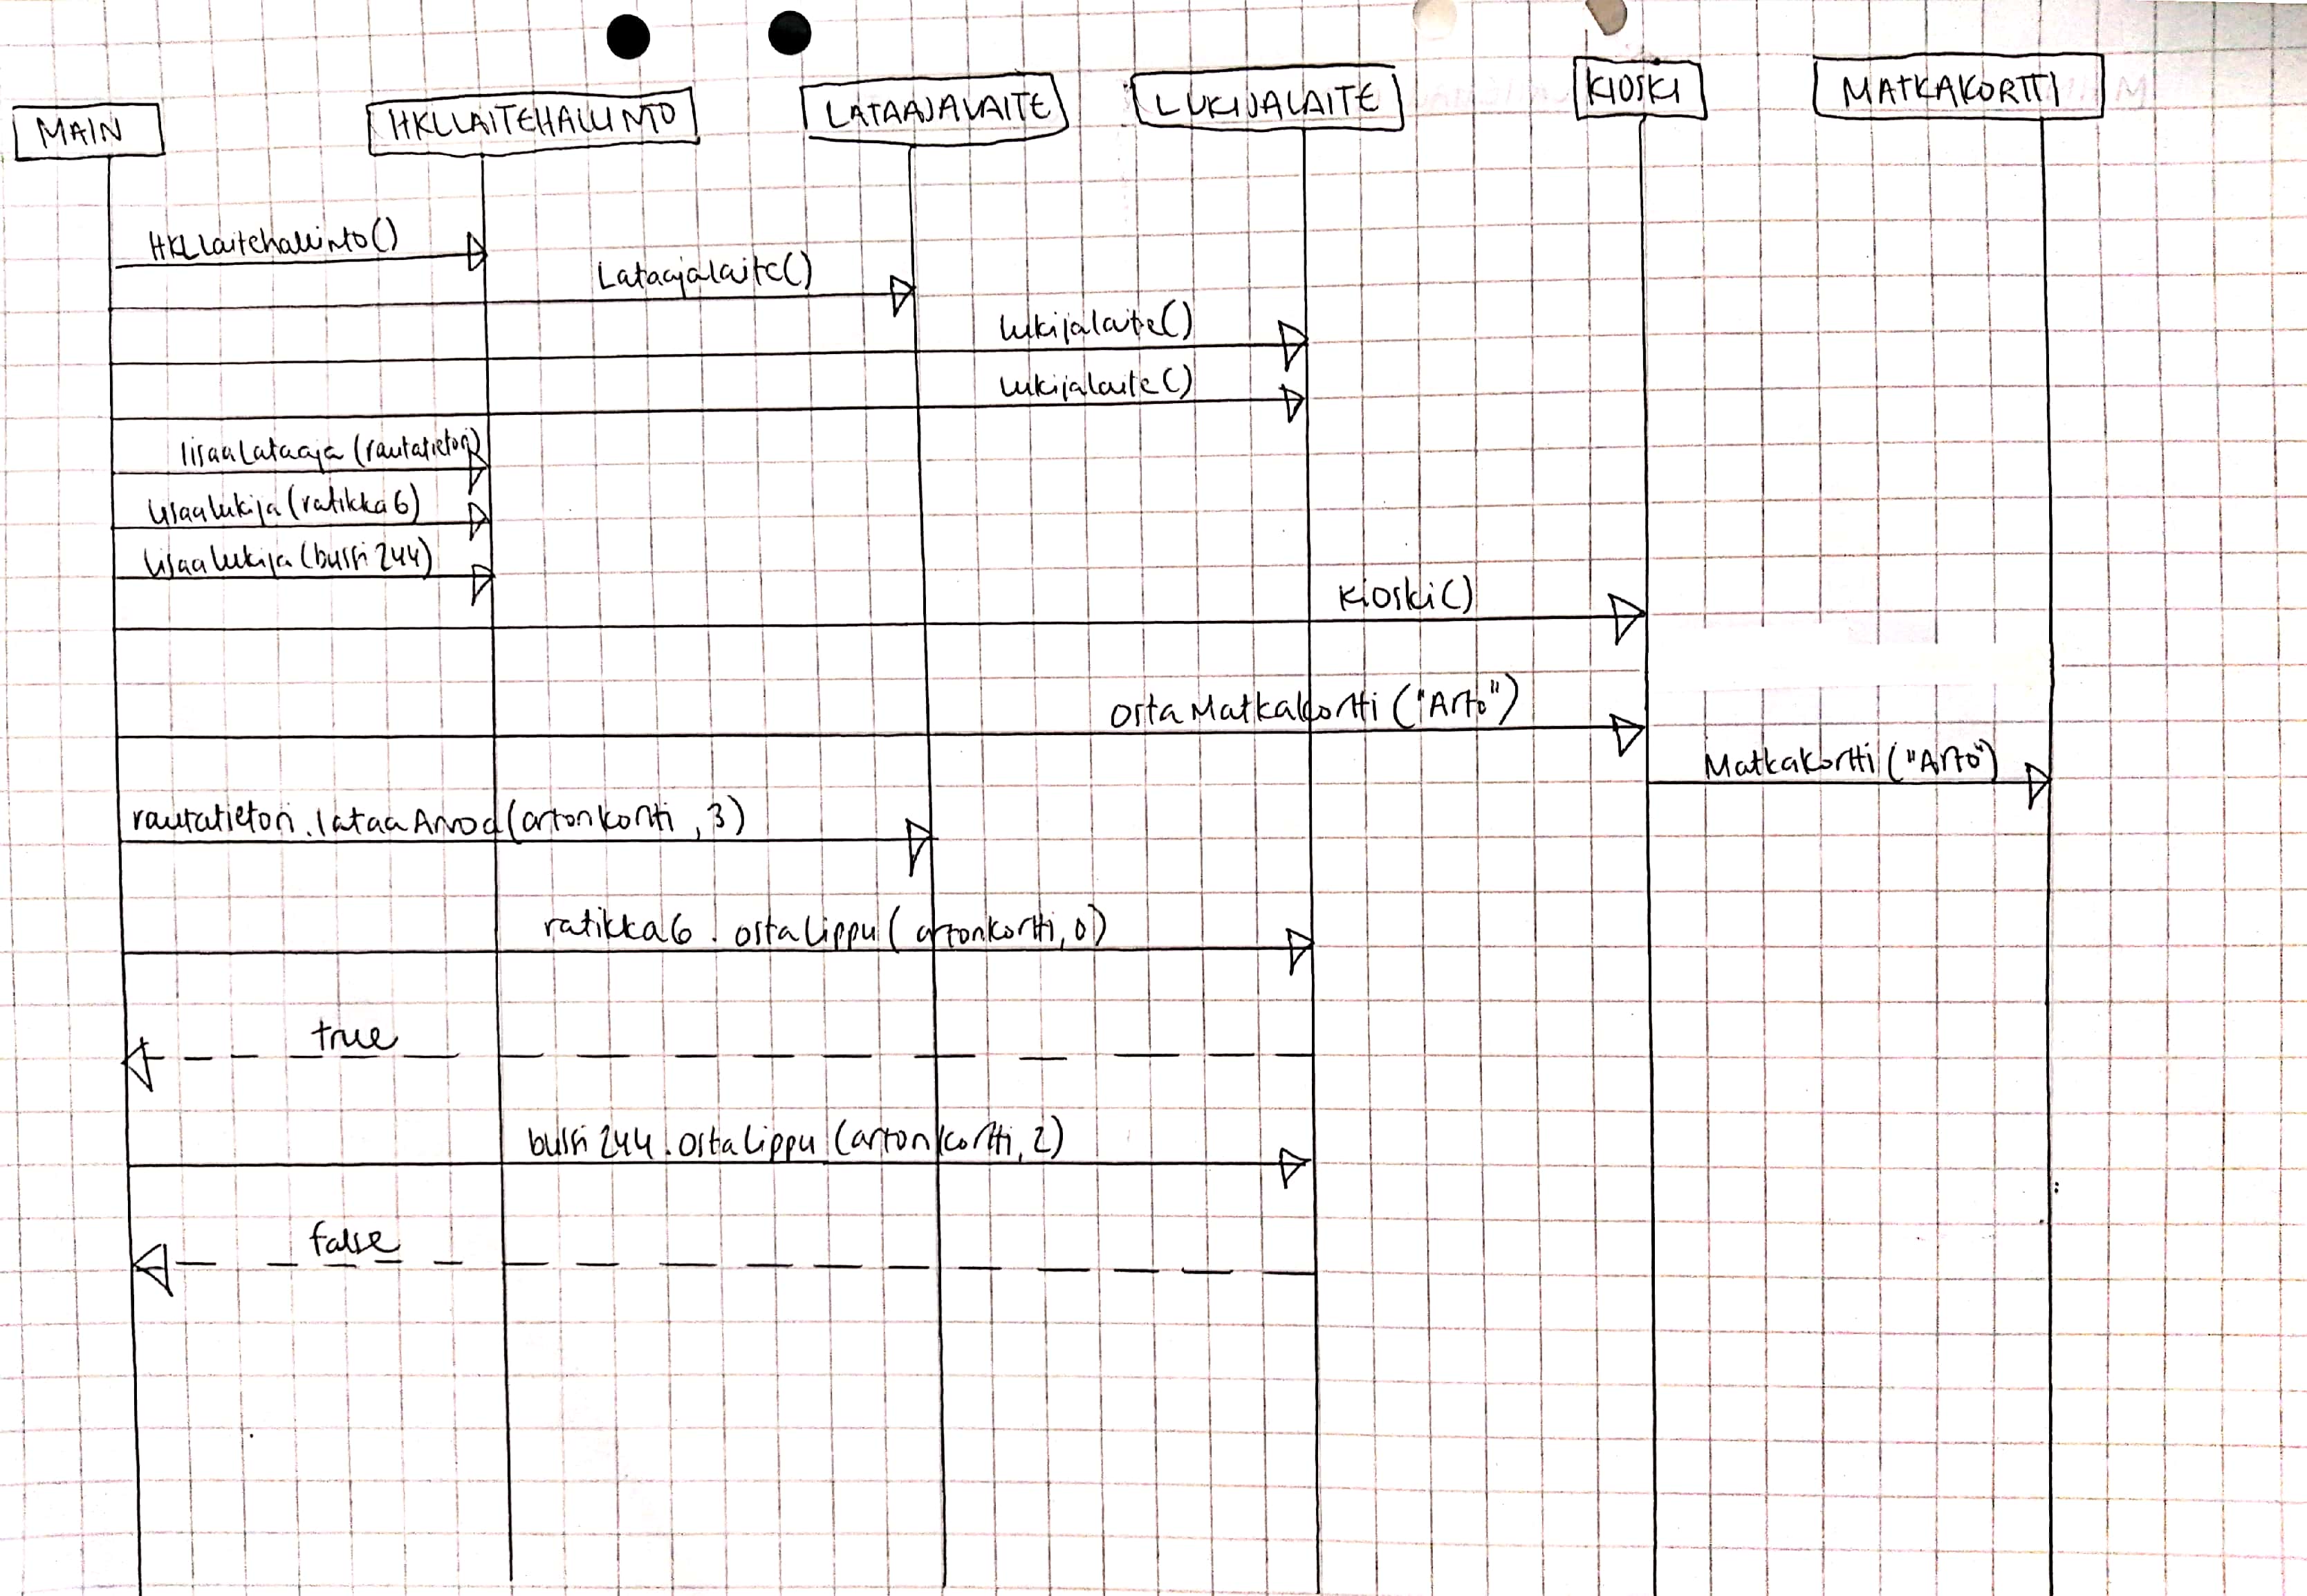 MAIN
HKLLAITEHALLINTO
LATAAJALAITE
LUKIJALAITE
KIOSKI
MATKAKORTTI
HKLLaitehallinto()
Lataajalaite()
Lukijalaite()
Lukijalaite()
lisaaLataaja(rautatietori)
lisaaLukija(ratikka6)
lisaaLukija(bussi244)
Kioski()
ostaMatkakortti("Arto")
Matkakortti("Arto")
rautatietori.lataaArvoa(artonkortti,3)
ratikka6.ostaLippu(artonkortti,0)
true
bussi244.ostaLippu(artonkortti,2)
false